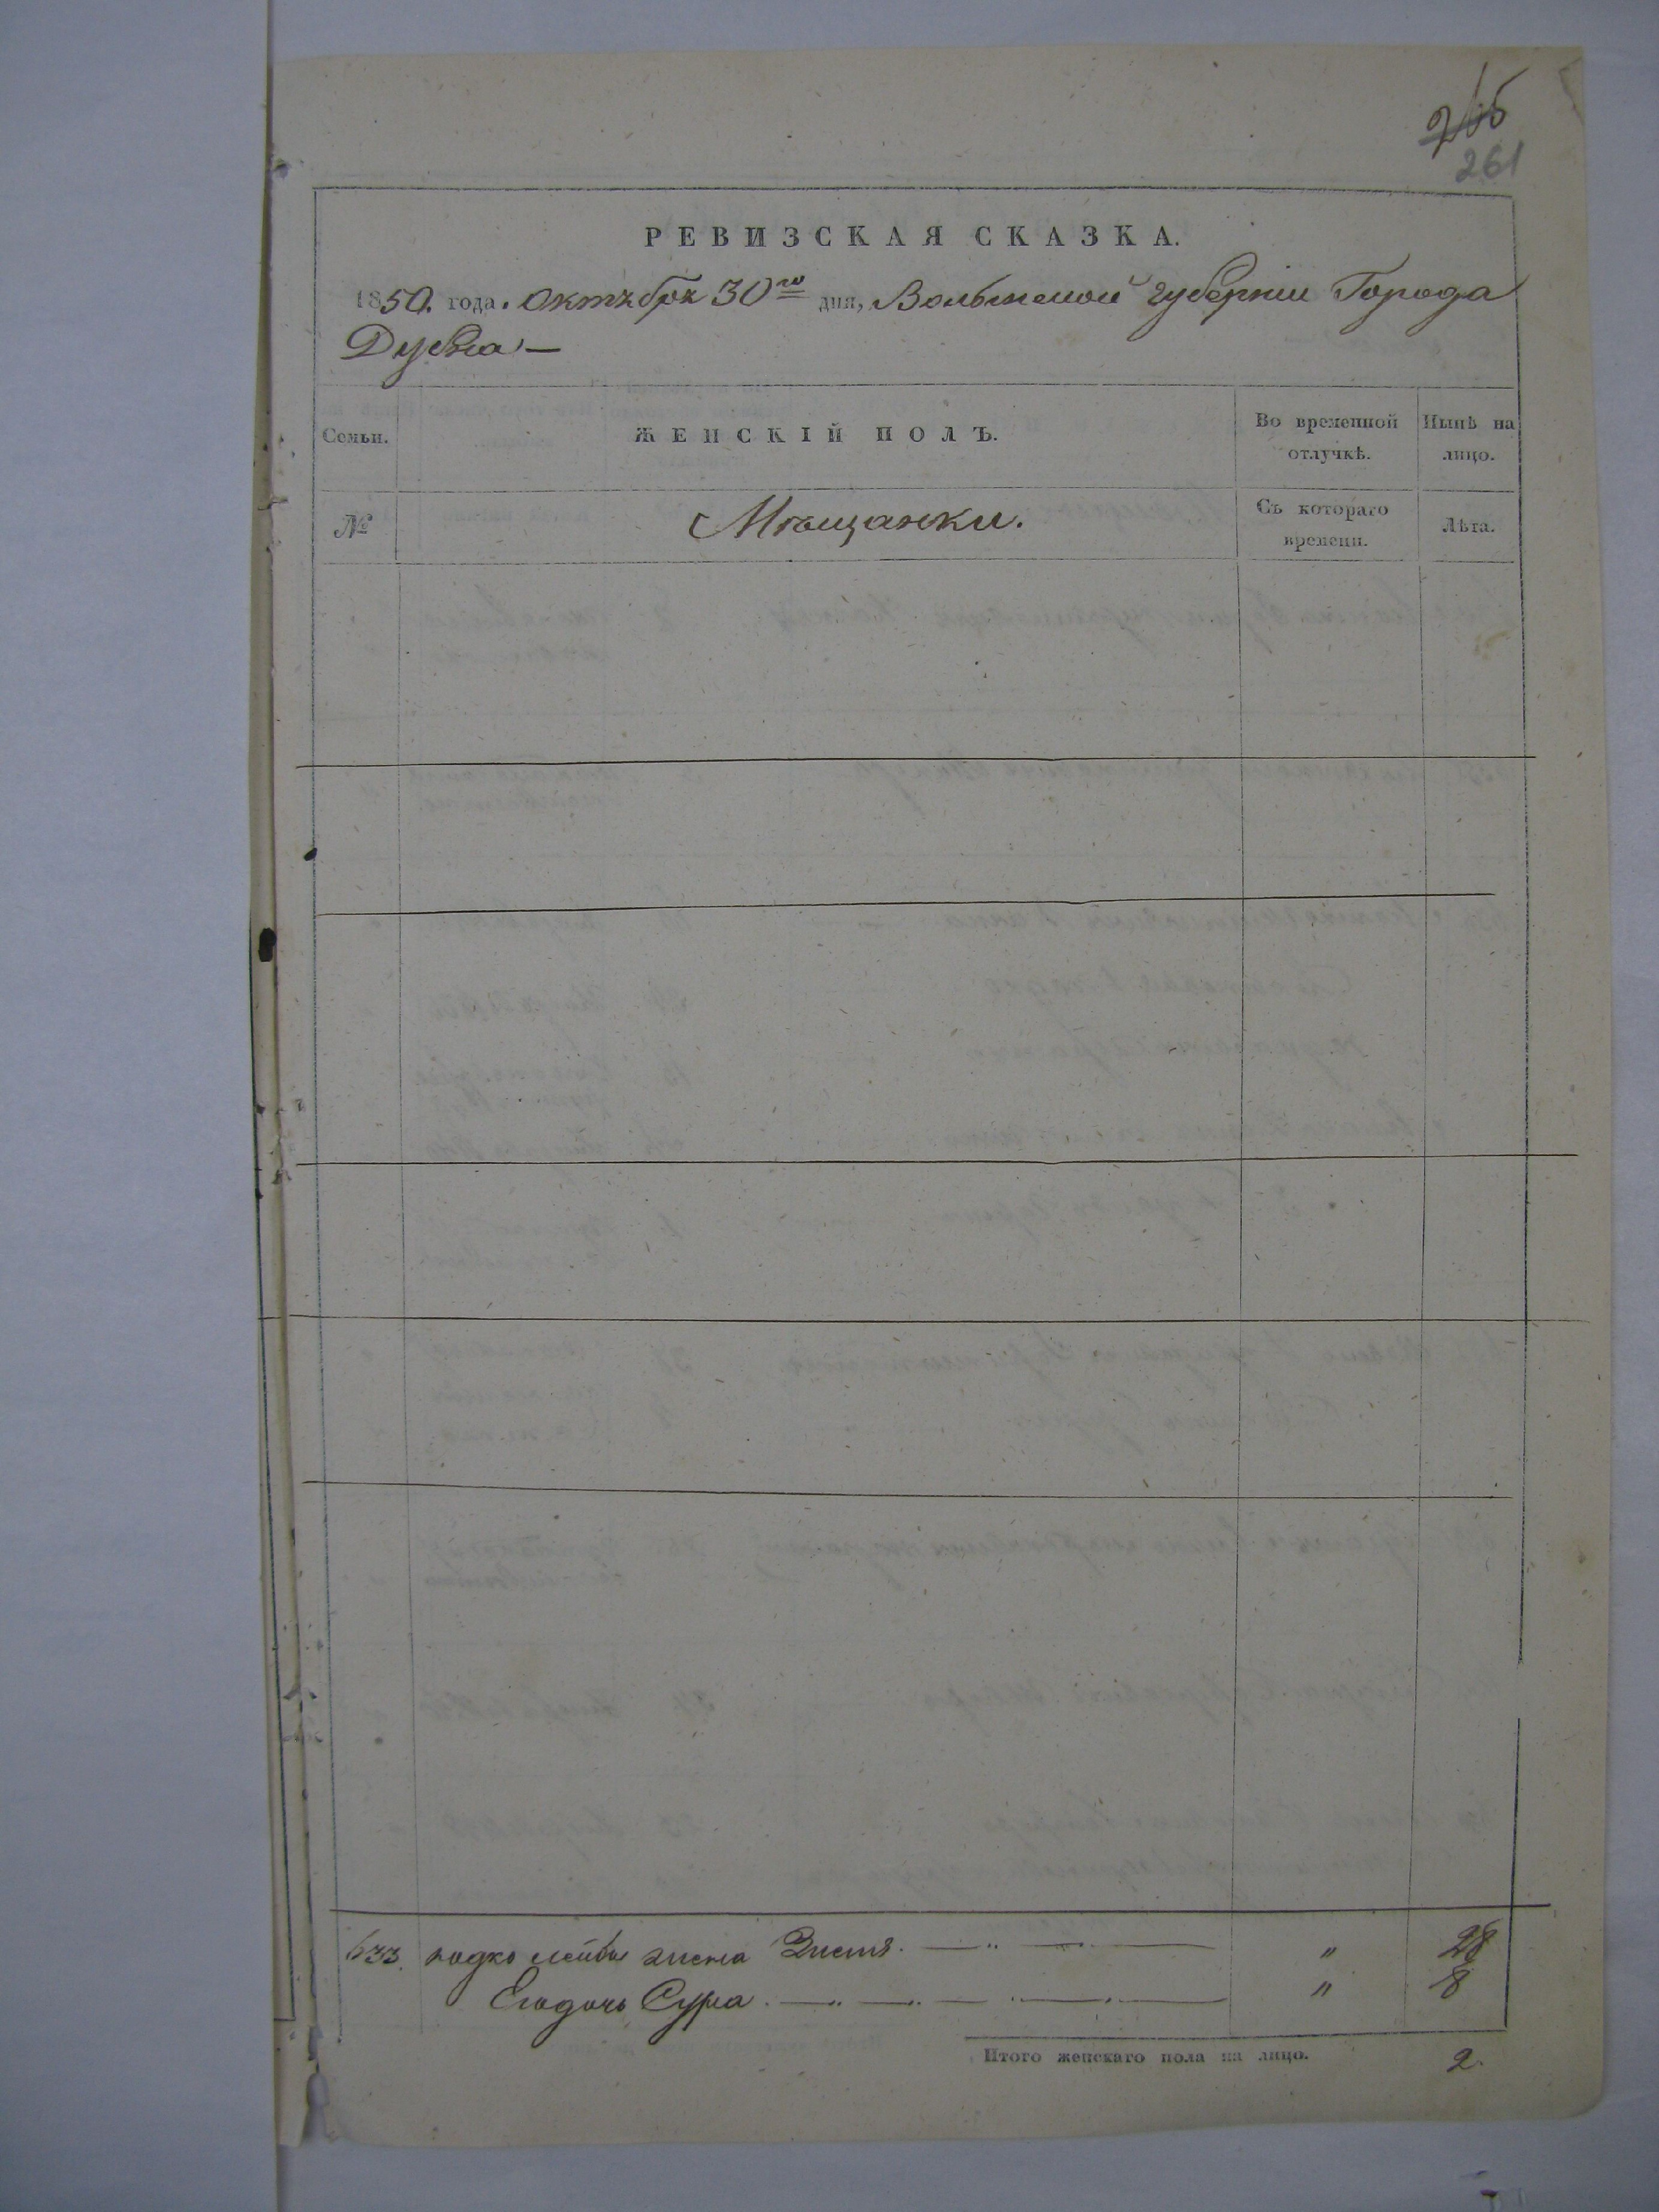 261
РЕВИЗСКАЯ СКАЗКА.
1850. года. Октября 30го дня, Волынской Губернии Города
Дубна —
Семьи. ЖЕНСКІЙ ПОЛЪ. Во временной отлучкѣ. Нынѣ на лицо.
№ Мѣщанки. Съ котораго времени. Лѣта.
633. жена Эстя. " 28
Его дочь Сура. " 8
Итого женскаго пола на лицо. 2.